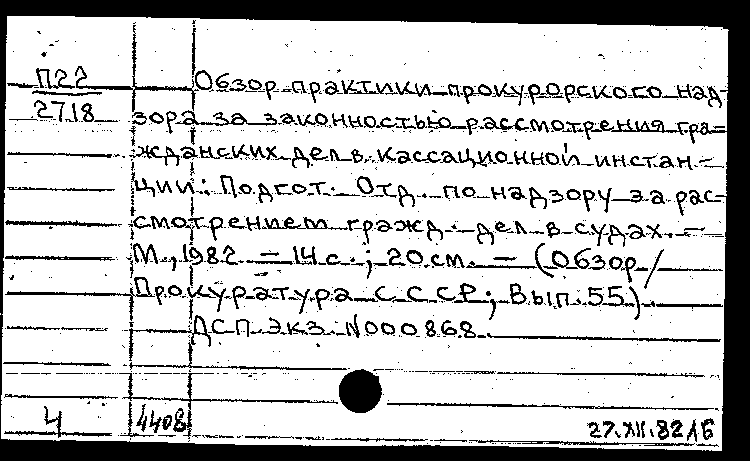 П22
2718
Обзор практики прокурорского над-
зора за законностью рассмотрения гра-
жданских дел в кассационной инстан-
ции: Подгот. Отд. по надзору за рас-
смотрением гражд. дел в судах. –
М., 1982 – 14 с.; 20 см. – (Обзор/
Прокуратура СССР; Вып. 55).
ДСП экз. N000868.
4
4408
27.XII.82 ЛБ